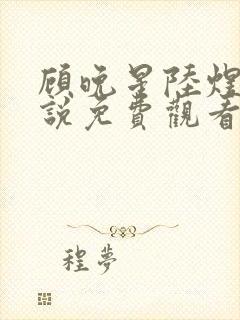 顧晚星陸煌
說免費觀看
程夢